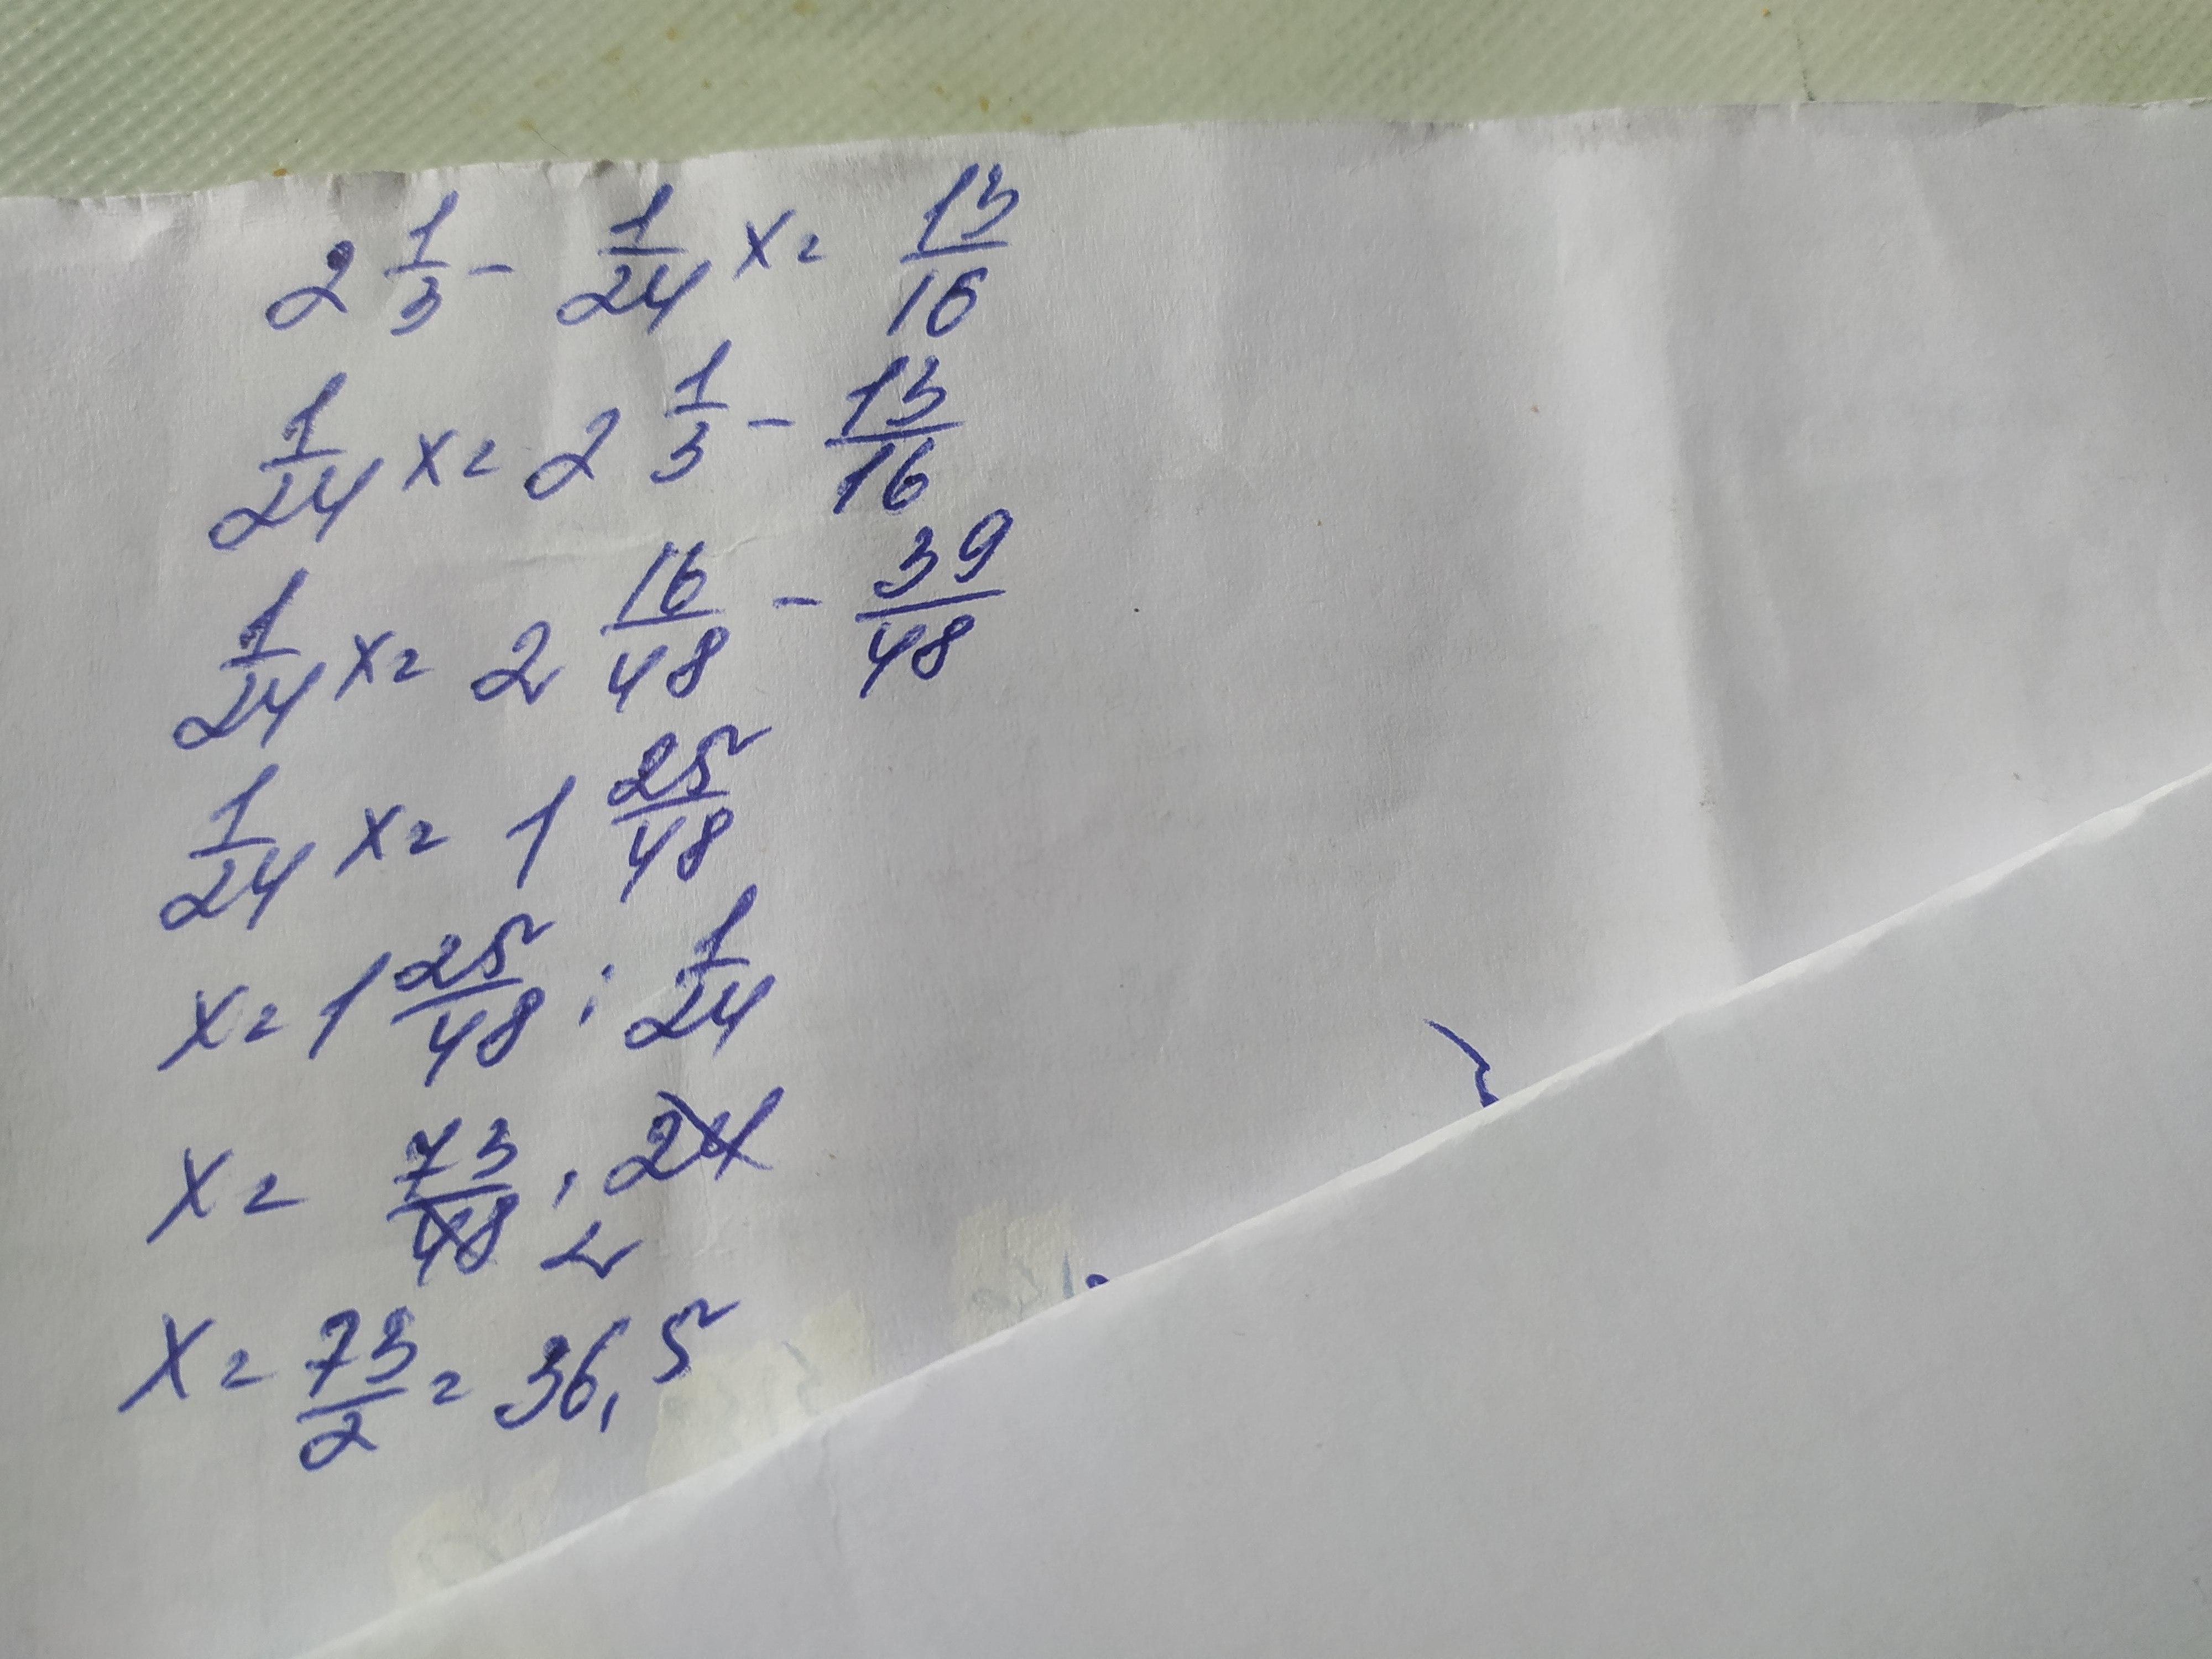 2 1/3 - 1/24 x = 13/16
1/24 x = 2 1/3 - 13/16
1/24 x = 2 16/48 - 39/48
1/24 x = 1 25/48
x = 1 25/48 : 1/24
x = 73/48 · 24
2
x = 73/2 = 36,5